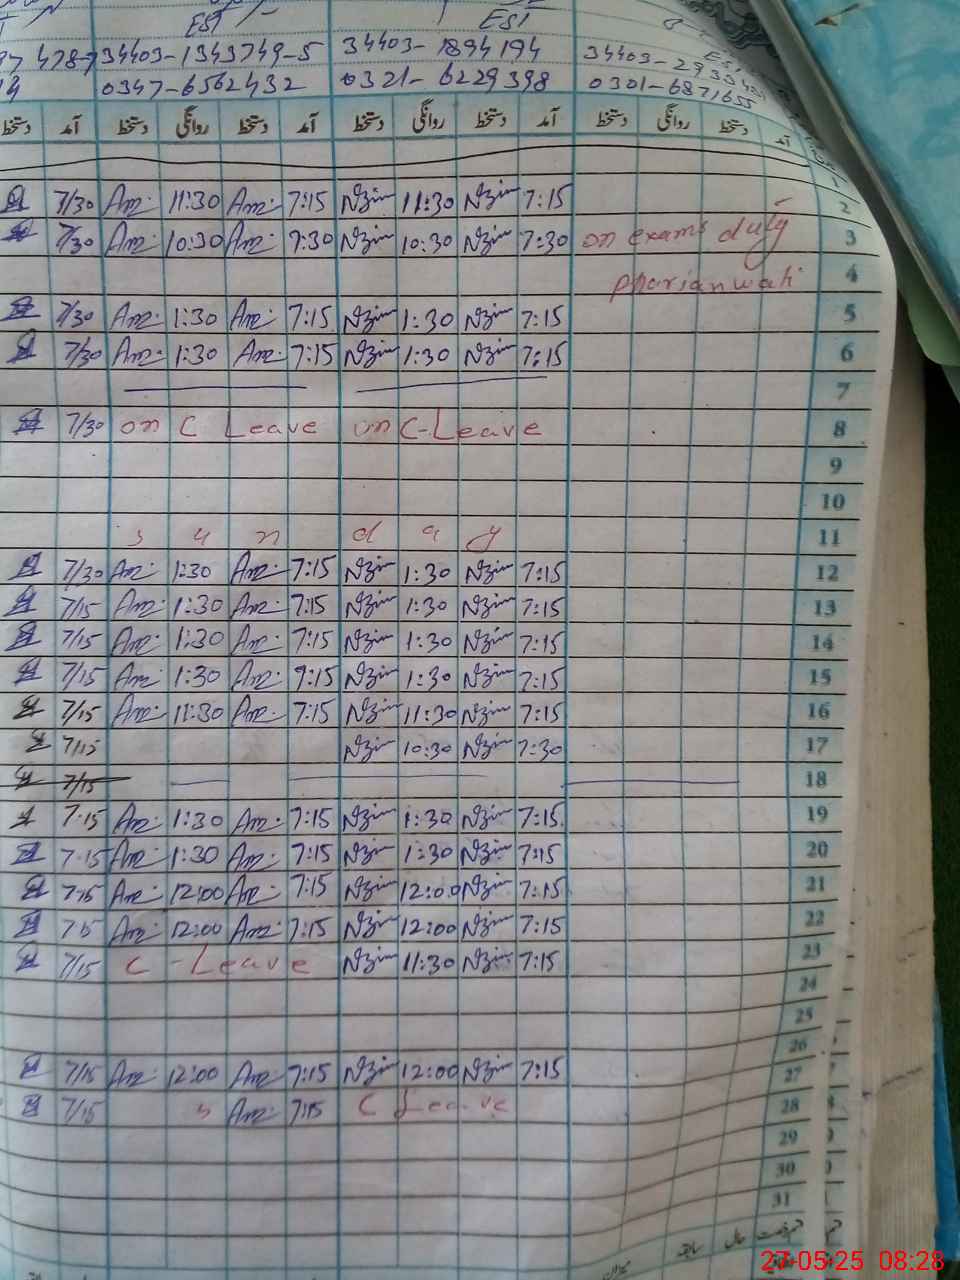 EST EST
4787 34403-1343749-5 34403-1894194 34403-29334
14 0347-6562432 0321-6229398 0301-6871655
دستخط آمد دستخط روانگی دستخط آمد دستخط روانگی دستخط آمد دستخط روانگی دستخط آمد
1
7/30 Am: 11:30 Am: 7:15 Nzim 11:30 Nzim 7:15 2
7/30 Am: 10:30 Am: 7:30 Nzim 10:30 Nzim 7:30 on exams duty 3
4
7/30 Am: 1:30 Am: 7:15 Nzim 1:30 Nzim 7:15 5
7/30 Am: 1:30 Am: 7:15 Nzim 1:30 Nzim 7:15 6
7
7/30 on C Leave on C-Leave 8
9
10
s u n d a y 11
7/30 Am: 1:30 Am: 7:15 Nzim 1:30 Nzim 7:15 12
7/15 Am: 1:30 Am: 7:15 Nzim 1:30 Nzim 7:15 13
7/15 Am: 1:30 Am: 7:15 Nzim 1:30 Nzim 7:15 14
7/15 Am: 1:30 Am: 7:15 Nzim 1:30 Nzim 7:15 15
7/15 Am: 11:30 Am: 7:15 Nzim 11:30 Nzim 7:15 16
7/15 Nzim 10:30 Nzim 7:30 17
7/15 18
7.15 Am: 1:30 Am: 7:15 Nzim 1:30 Nzim 7:15 19
7.15 Am: 1:30 Am: 7:15 Nzim 1:30 Nzim 7:15 20
7.15 Am: 12:00 Am: 7:15 Nzim 12:00 Nzim 7:15 21
7.15 Am: 12:00 Am: 7:15 Nzim 12:00 Nzim 7:15 22
7/15 C-Leave Nzim 11:30 Nzim 7:15 23
24
25
26
7/15 Am: 12:00 Am: 7:15 Nzim 12:00 Nzim 7:15 27
7/15 Am: 7:15 C Leave 28
29
30
31
سابقہ حال
میزان
27-05-25 08:28